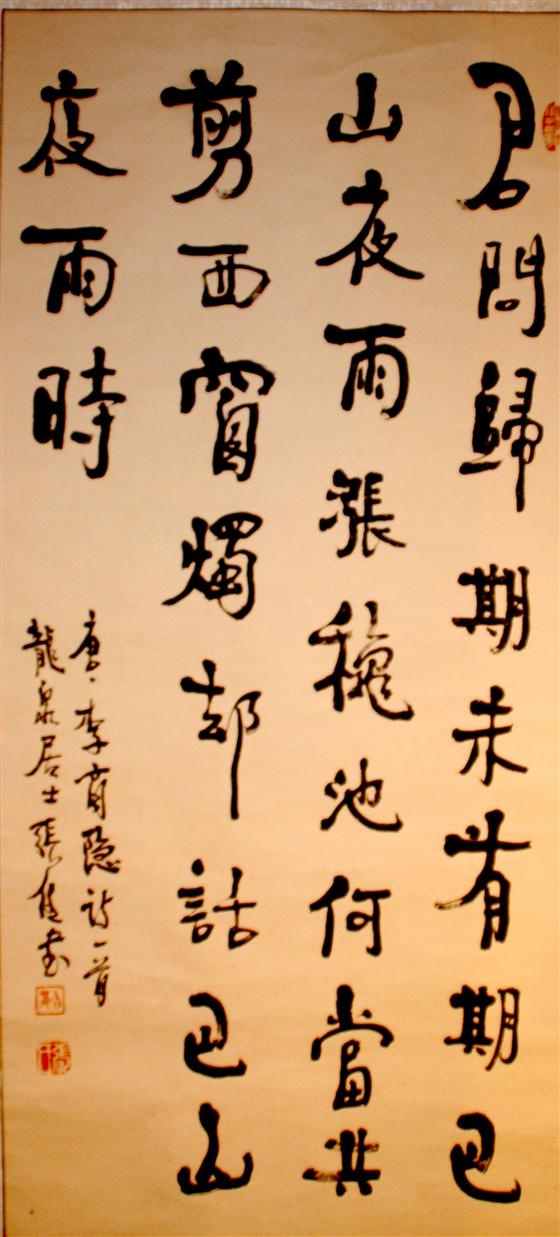 君問歸期未有期巴
山夜雨漲穐池何當共
剪西窗燭却話巴山
夜雨時
唐·李商隐詩一首
龍泉居士張書